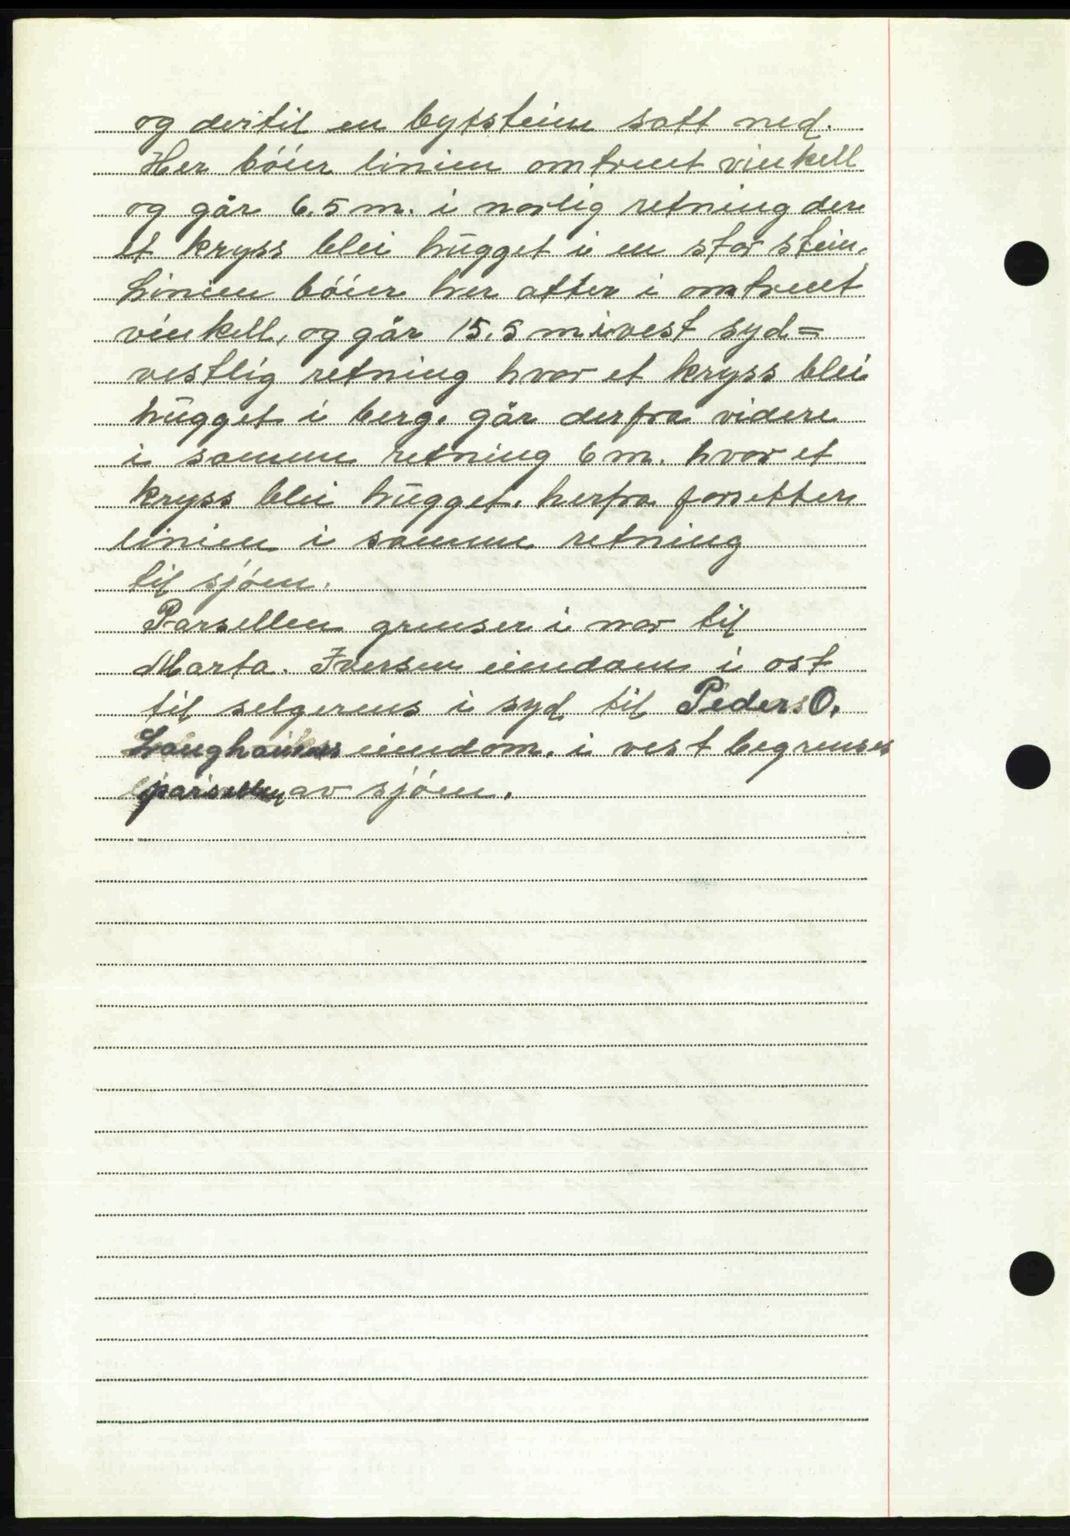 og dertil en bytsteinn satt ned.
Her bóier linien omtrent vinkell
og går 6.5 m. i norlig retning der
et kryss blei hügget i en stor stein.
Linien bóier her atter i omtrent
vinkell, og går 15.5 m i vest syd=
vestlig retning hvor et kryss blei
hügget i berg. går derfra videre
i samme retning 6 m. hvor et
kryss blei hügget. herfra forsetter
linien i samme retning
til sjóen.
Parsellen grenser i nor til
Marta. Iversen eiendom i ost
til selgerens i syd til Peders O.
eiendom. i vest begrenses
parsellen av sjóen.